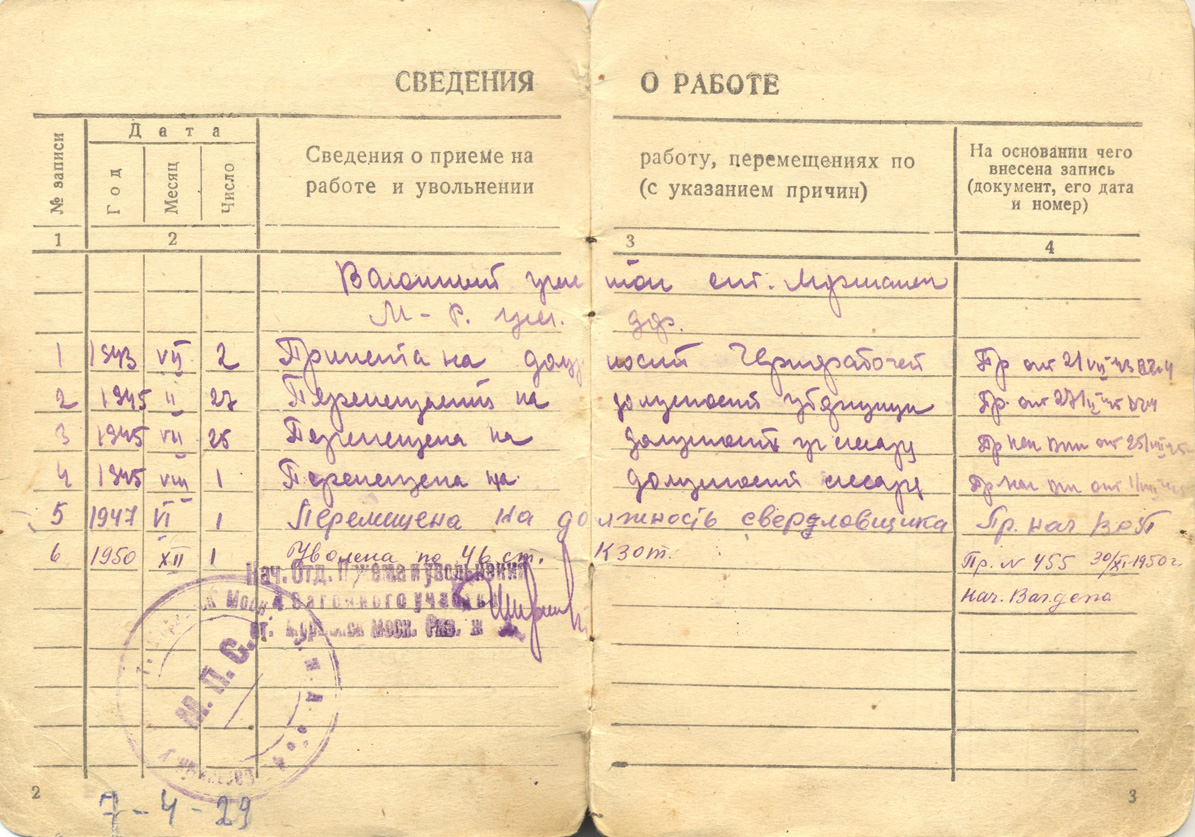 СВЕДЕНИЯ О РАБОТЕ
№ записи
Дата
Год
Месяц
Число
Сведения о приеме на работу, перемещениях по
работе и увольнении (с указанием причин)
На основании чего
внесена запись
(документ, его дата
и номер)
1 2 3 4
Вагонный ст.
М-Р. др.
1 1943 VII 2 Принята на должность Чернорабочей Пр от 2/VII 43
2 1945 II 27 на должность Пр. от 27/II 45
3 1945 VII 25 Перемещена на должность Пр нач от 25/VII 45
4 1945 VIII 1 Перемещена на должность слесаря Пр нач от 1/VIII
5 1947 VI 1 Перемищена на должность свердловщика Пр. нач
6 1950 XII 1 Уволена по 46 ст. Кзот. Пр. N 455 30/XI-1950г.
нач. Вагдепа
Нач. Отд. Приема и увольнений
Вагонного участка
ст. Моск. Ряз. ж д
М.П.С.
2
3
7-4-29